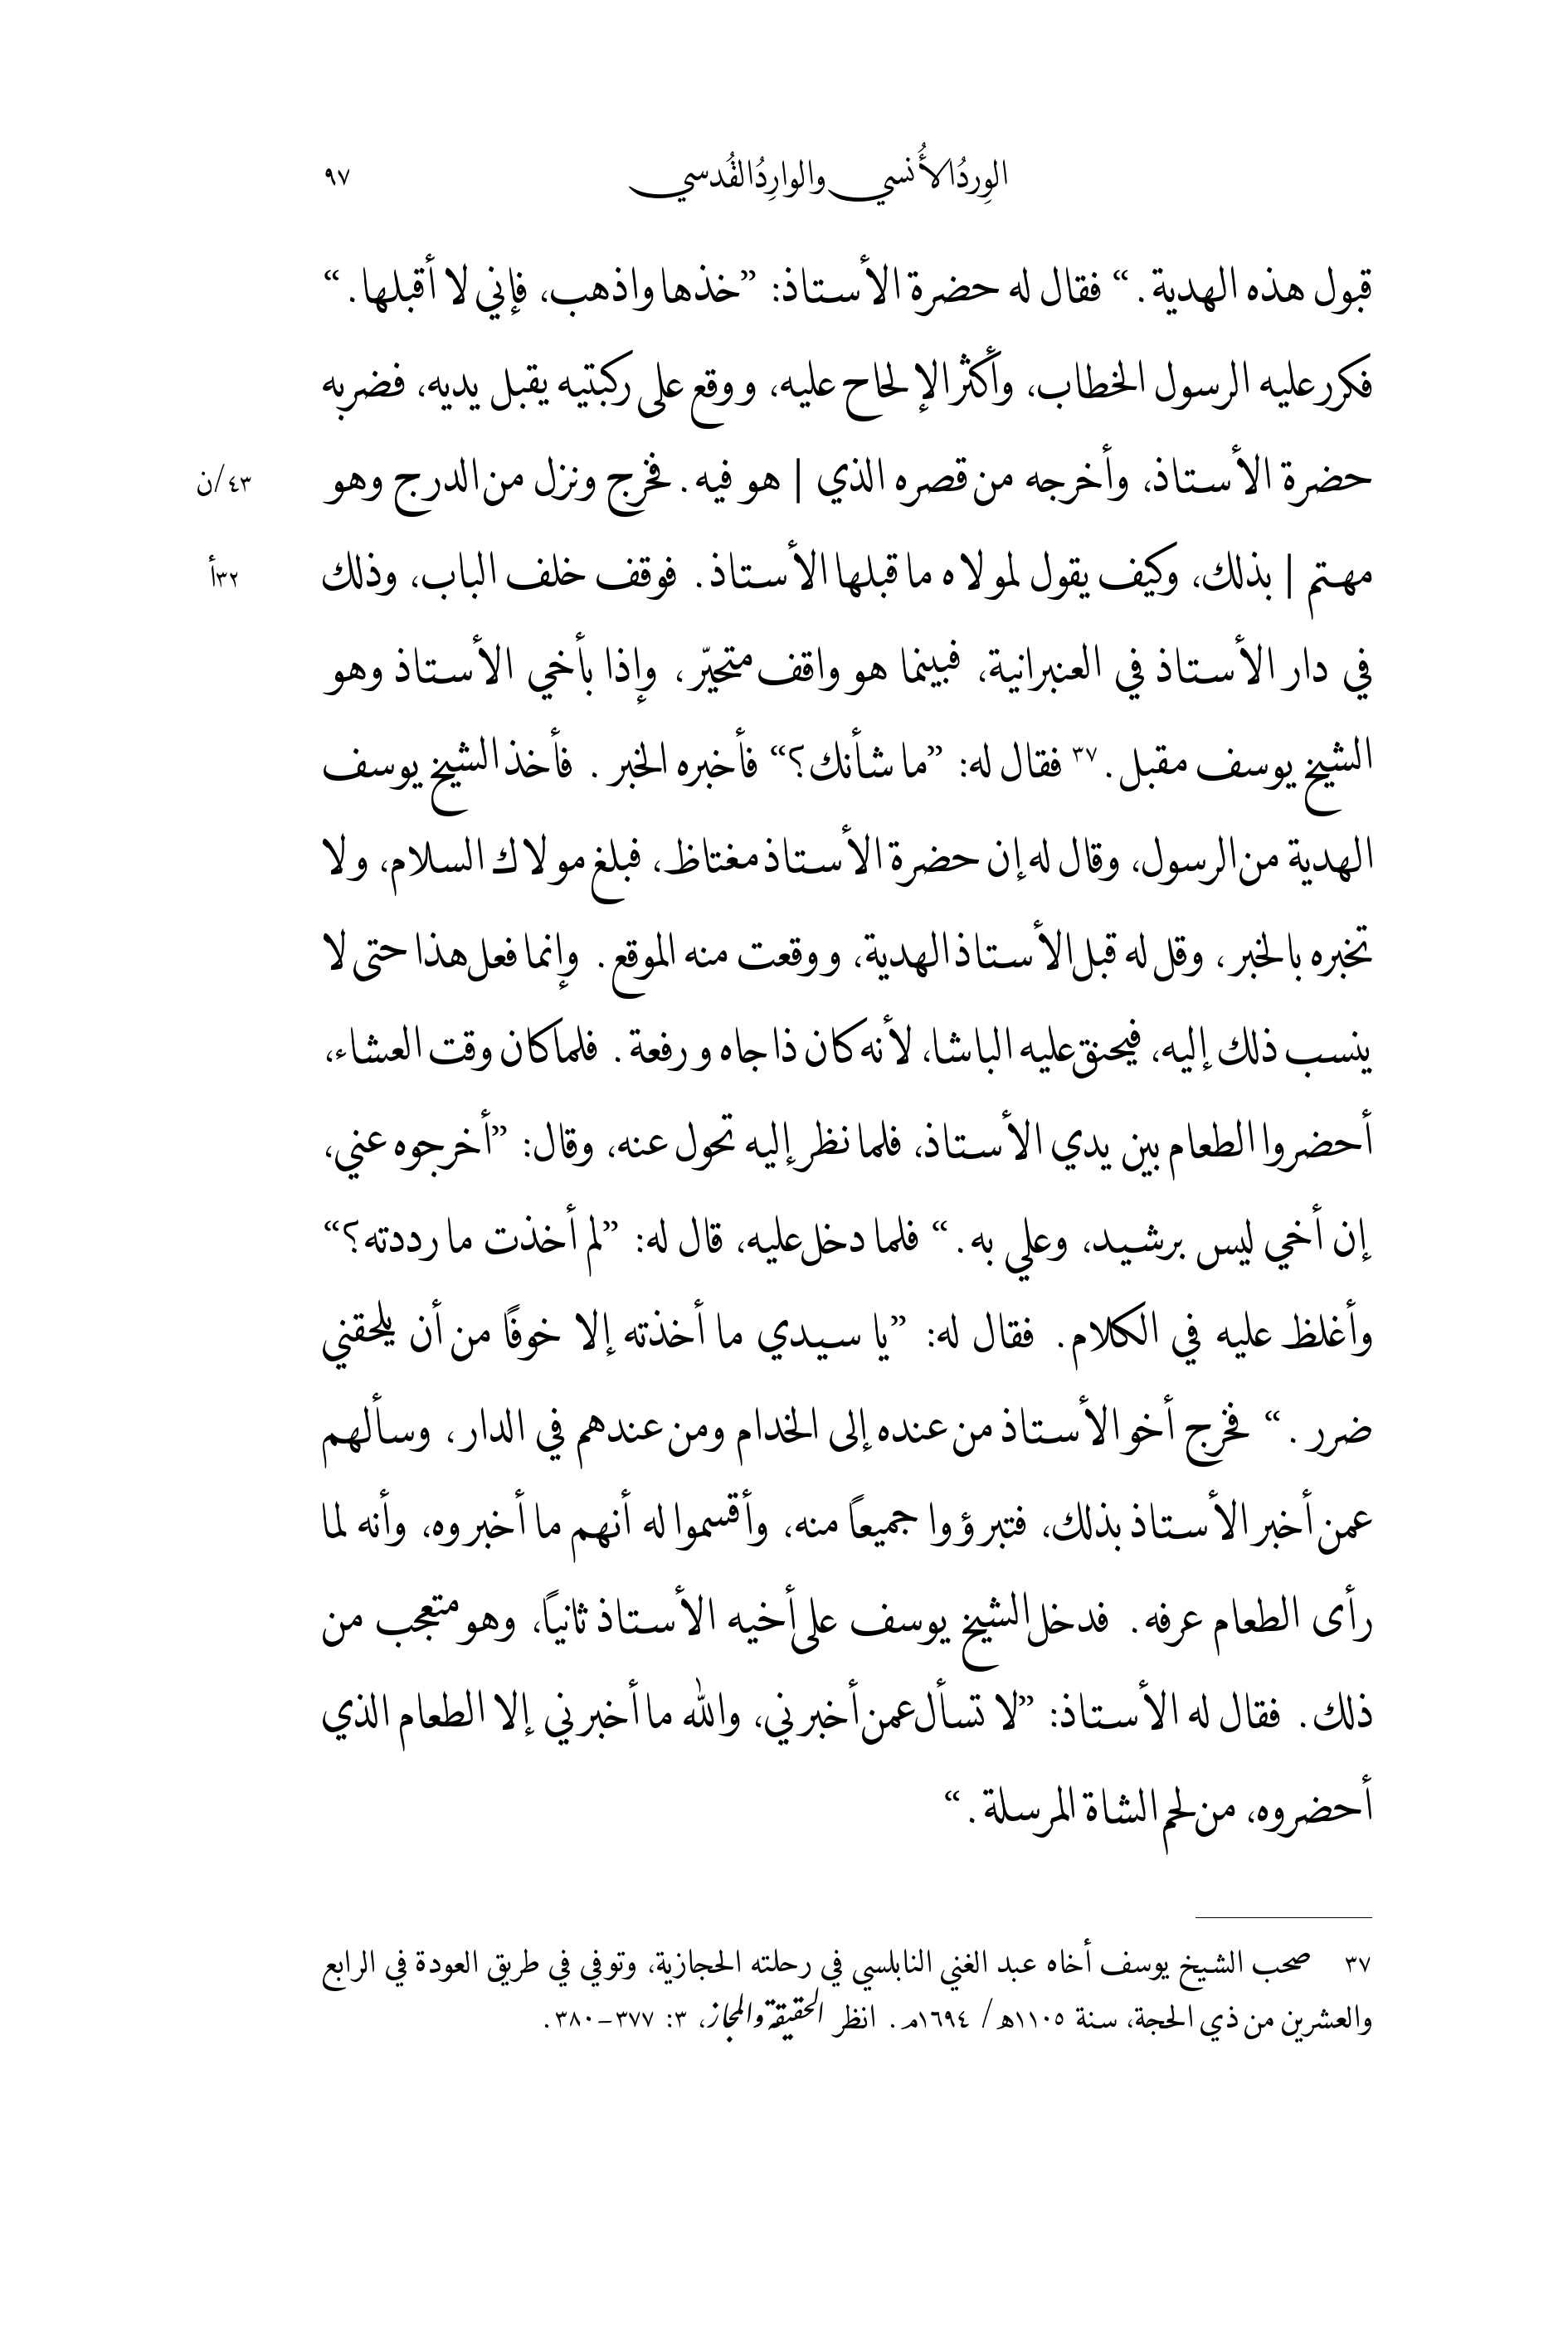 الوِردُ الأُنسي والوارِدُ القُدسي ٩٧
قبول هذه الهدية.“ فقال له حضرة الأستاذ: ”خذها واذهب، فإني لا أقبلها.“
فكرر عليه الرسول الخطاب، وأكثر الإلحاح عليه، ووقع على ركبتيه يقبل يديه، فضربه
حضرة الأستاذ، وأخرجه من قصره الذي | هو فيه. فخرج ونزل من الدرج وهو ٤٣/ن
مهتم | بذلك، وكيف يقول لمولاه ما قبلها الأستاذ. فوقف خلف الباب، وذلك ٣٢أ
في دار الأستاذ في العنبرانية، فبينما هو واقف متحيّر، وإذا بأخي الأستاذ وهو
الشيخ يوسف مقبل.٣٧ فقال له: ”ما شأنك؟“ فأخبره الخبر. فأخذ الشيخ يوسف
الهدية من الرسول، وقال له إن حضرة الأستاذ مغتاظ، فبلغ مولاك السلام، ولا
تخبره بالخبر، وقل له قبل الأستاذ الهدية، ووقعت منه الموقع. وإنما فعل هذا حتى لا
ينسب ذلك إليه، فيحنق عليه الباشا، لأنه كان ذا جاه ورفعة. فلما كان وقت العشاء،
أحضروا الطعام بين يدي الأستاذ، فلما نظر إليه تحول عنه، وقال: ”أخرجوه عني،
إن أخي ليس برشيد، وعلي به.“ فلما دخل عليه، قال له: ”لم أخذت ما رددته؟“
وأغلظ عليه في الكلام. فقال له: ”يا سيدي ما أخذته إلا خوفًا من أن يلحقني
ضرر.“ فخرج أخو الأستاذ من عنده إلى الخدام ومن عندهم في الدار، وسألهم
عمن أخبر الأستاذ بذلك، فتبرؤوا جميعاً منه، وأقسموا له أنهم ما أخبروه، وأنه لما
رأى الطعام عرفه. فدخل الشيخ يوسف على أخيه الأستاذ ثانياً، وهو متعجب من
ذلك. فقال له الأستاذ: ”لا تسأل عمن أخبرني، والله ما أخبرني إلا الطعام الذي
أحضروه، من لحم الشاة المرسلة.“
٣٧ صحب الشيخ يوسف أخاه عبد الغني النابلسي في رحلته الحجازية، وتوفي في طريق العودة في الرابع
والعشرين من ذي الحجة، سنة ١١٠٥ه/ ١٦٩٤م. انظر الحقيقة والمجاز، ٣: ٣٧٧–٣٨٠.